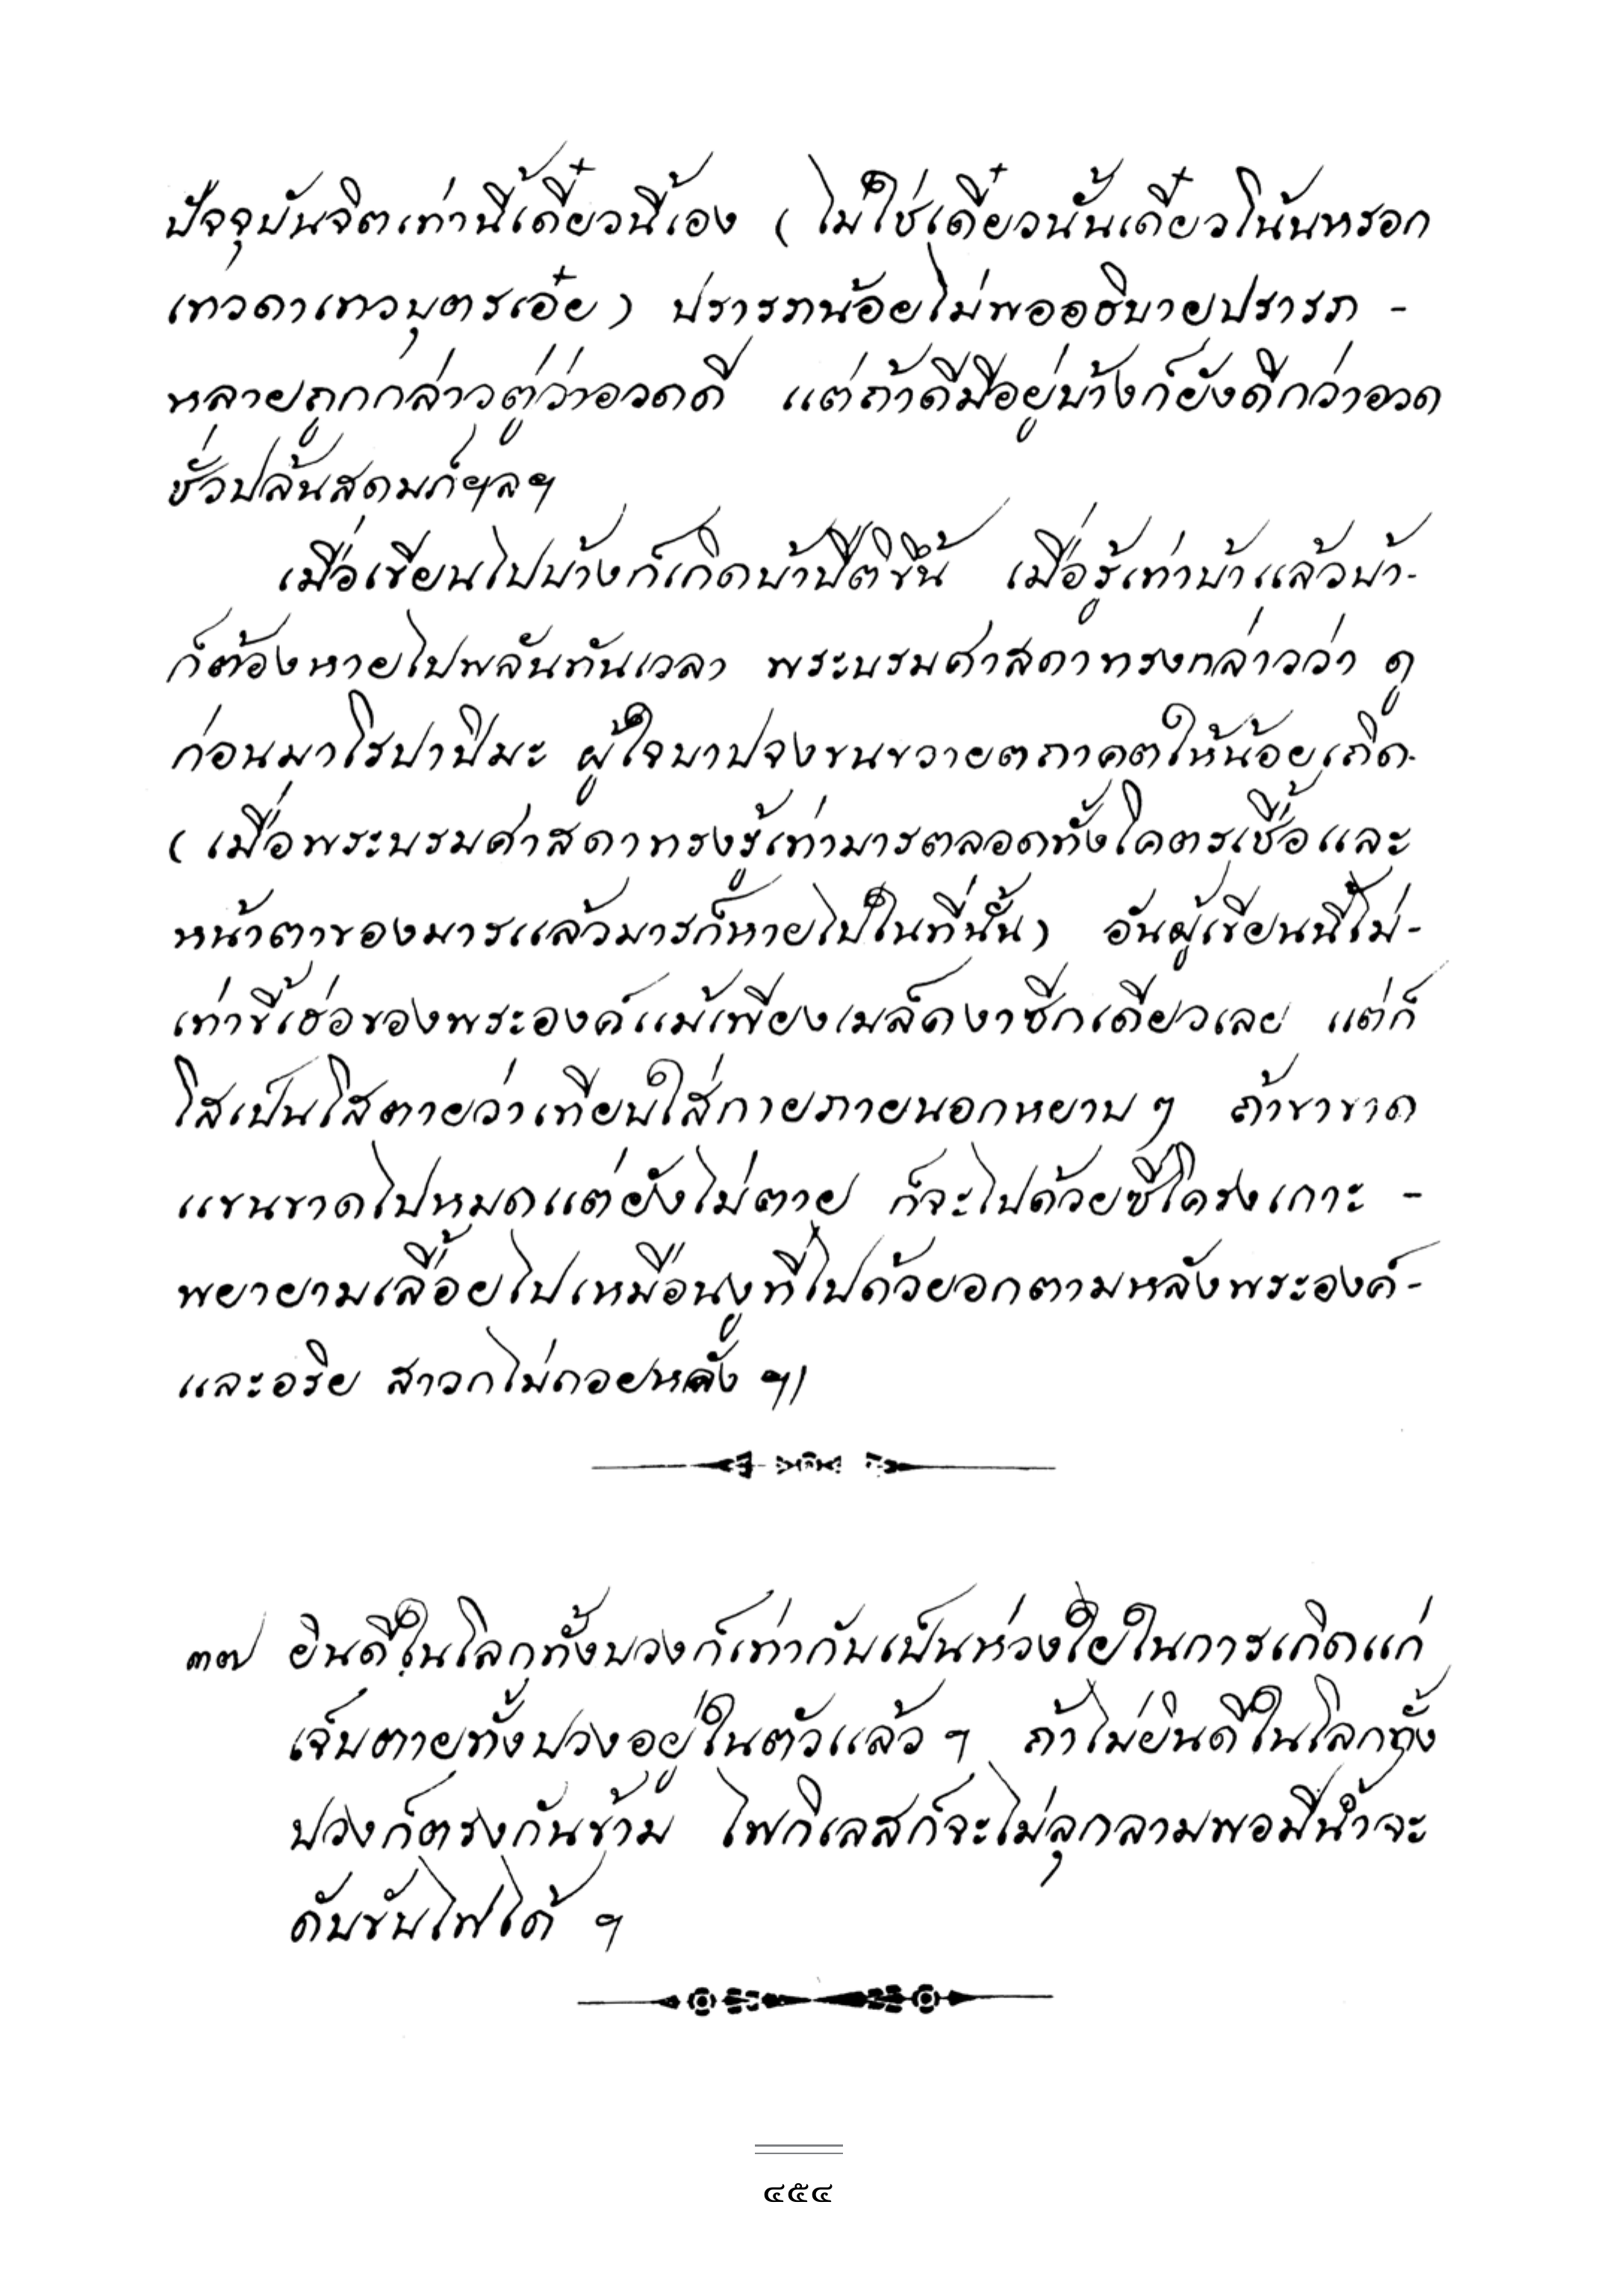 ปัจจุบันจิตเท่านี้เดี๋ยวนี้เอง (ไม่ใช่เดี๋ยวนั้นเดี๋ยวโน้นหรอก
เทวดาเทวบุตรเอ๋ย) ปรารภน้อยไม่พออธิบายปรารภ -
หลายถูกกล่าวตู่ว่าอวดดี แต่ถ้าดีมีอยู่บ้างก็ยังดีกว่าอวด
ชั่วปล้นสดมภ์ฯลฯ
เมื่อเขียนไปบ้างก็เกิดบ้าปีติขึ้น เมื่อรู้เท่าบ้าแล้วบ้า-
ก็ต้องหายไปพลันทันเวลา พระบรมศาสดาทรงกล่าวว่า ดู
ก่อนมาโรปาปิมะ ผู้ใจบาปจงขนขวายตถาคตให้น้อยเถิด-
(เมื่อพระบรมศาสดาทรงรู้เท่ามารตลอดทั้งโคตรเชื้อและ
หน้าตาของมารแล้วมารก็หายไปในที่นั้น) อันผู้เขียนนี้ไม่-
เท่าขี้เฮ่อของพระองค์แม้เพียงเมล็ดงาซีกเดียวเลย แต่ก็
โสเป็นโสตายว่าเทียบใส่กายภายนอกหยาบๆ ถ้าขาขาด
แขนขาดไปหมดแต่ยังไม่ตาย ก็จะไปด้วยซี่โครงเกาะ -
พยายามเลื้อยไปเหมือนงูที่ไปด้วยอกตามหลังพระองค์-
และอริย สาวกไม่ถอยหลัง ฯ)
๓๗ ยินดีในโลกทั้งปวงก็เท่ากับเป็นห่วงใยในการเกิดแก่
เจ็บตายทั้งปวงอยู่ในตัวแล้ว ฯ ถ้าไม่ยินดีในโลกทั้ง
ปวงก็ตรงกันข้าม ไฟกิเลสก็จะไม่ลุกลามพอมีน้ำจะ
ดับขันไฟได้ ฯ
๔๕๔